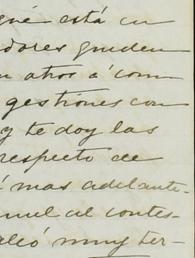 qué está en
dores pueden
n atros á com
gestiones con
y te doy las
respecto de
mas adelante
nuel al contes-
alió muy ter-